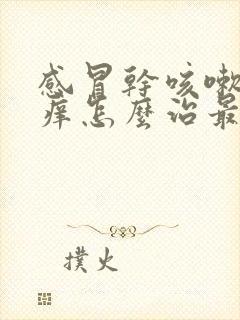 感冒幹咳嗽
痒怎麼治最
撲火